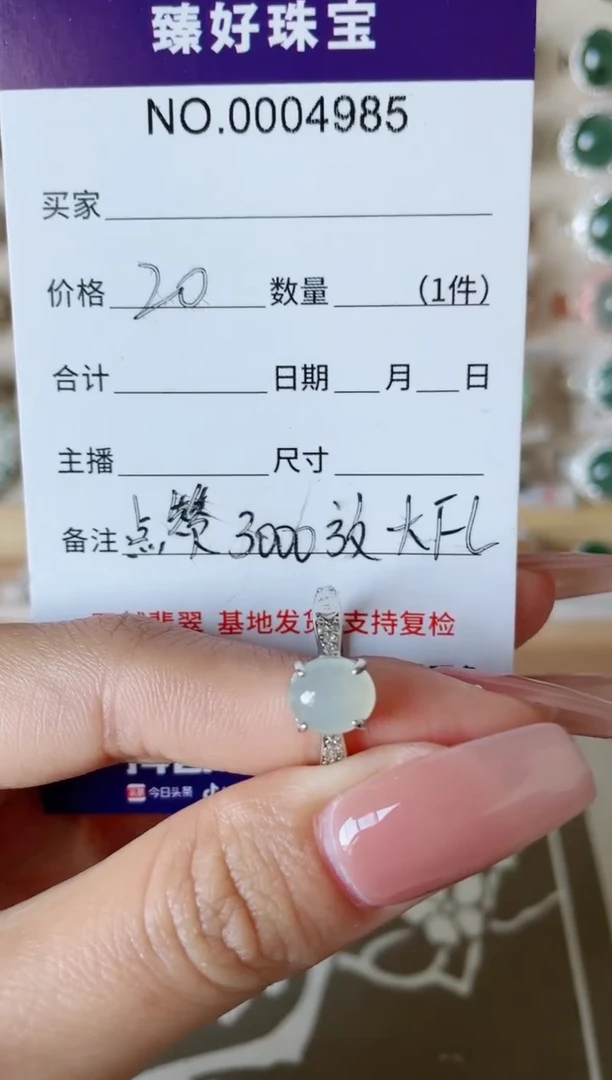 臻好珠宝
NO.0004985
买家
价格 20 数量 (1件)
合计 日期 月 日
主播 尺寸
备注 点赞3000放大FL
翡翠 基地发货 支持复检
今日头条